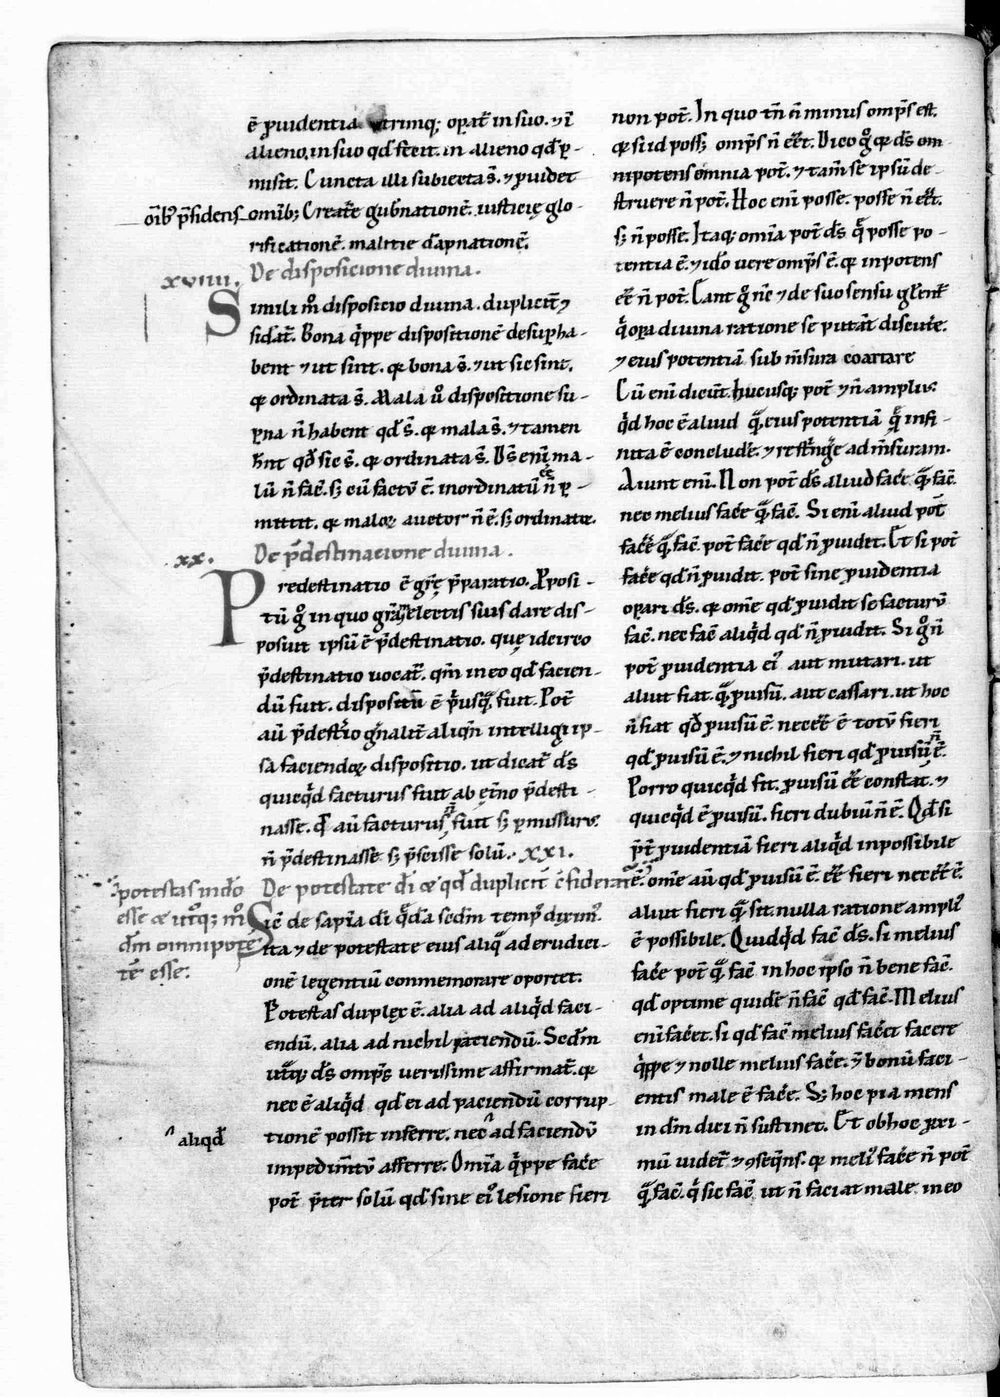 ē ꝓuidentia utrinq; oꝑat̄ in suo. ⁊ ī
alieno. in suo qd̄ fecit. in alieno qd̄ ꝑ-
misit. Cuncta illi subiecta s̄. ⁊ ꝓuidet
oīb; p̄sidens
omīb; Creat̄e gub̄natione. iusticię glo-
rificationē. malitie dāpnationē.
xviiii. De disposicione diuina.
Simili m̊ disposicio diuina. duplicit̄ ⁊
sidat̄. Bona q̓ppe dispositionē desup̱ ha-
bent ⁊ ut sint. ꝙ bona s̄. ⁊ ut sic sint.
ꝙ ordinata s̄. Mala ů dispositione su-
ꝑna n̄ habent qd̄ s̄. ꝙ mala s̄. ⁊ tamen
hn̄t qd̄ sic s̄. ꝙ ordinata s̄. D̄s enī ma-
lū n̄ fac̄. s; cū factū ē. inordinatū ēē n̄ ꝑ-
mittit. ꝙ maloꝝ auctor n̄ ē. s; ordinator.
xx. De p̄destinacione diuina.
Predestinatio ē grē p̄paratio. Ꝓposi-
tū g̊ in quo grām electis suis dare dis-
posuit ipsū ē p̄destinatio. quę idcirco
p̄destinatio uocat̄. qm̄ in eo qd̄ facien-
dū fuit. dispositū ē p̓usq̄ fuit. Pot̄
aū p̄destīo gn̄alit̄ aliqn̄ intelligi ip-
sa faciendoꝝ dispositio. ut dicat̄ d̄s
quicq̓d facturus fuit ab et̄no p̄desti-
nasse. Q̄ aū facturus n̄ fuit s; ꝑmissurus
n̄ p̄destinasse s; p̄scisse solū. XXI.
De potestate dī ⁊ qd̄ duplicit̄ ⁊siderat̄
potestas in dō
esse ⁊ utq; m̊
dm̄ omnipotē
tē esse:
Sic̄ de sapīa dī q̄dā scdm̄ temp̄ dixim᷒.
ita ⁊ de potestate eius aliq̄ ad erudici-
onē legentiū conmemorare oportet.
Potestas duplex ē. alia ad aliq̓d faci-
endū. alia ad nichil paciendū. Scdm̄
utq; d̄s omp̄s uerissime affirmat̄. ꝙ
nec ē aliq̓d qd̄ ei ad paciendū corrup-
tionē possit inferre. nec ad faciendū
aliqd̄
impedim̄tū afferre. Omīa q̓ppe fac̄e
pot̄ p̄ter solū qd̄ sine ei᷒ lesione fieri
non pot̄. In quo tn̄ n̄ minus omp̄s est.
ꝙ si id poss; omp̄s n̄ ēēt. Dico g̊ ꝙ d̄s om-
nipotens omnia pot̄. ⁊ tam̄ se ipsū de-
struere n̄ pot̄. Hoc enī posse. posse n̄ ēēt.
s; n̄ posse. Itaq; omīa pot̄ d̄s q̄ posse po-
tentia ē. ⁊ idō uere omp̄s ē. ꝙ inpotens
ēē n̄ pot̄. Eant g̊ nc̄ ⁊ de suo sensu gl̄ent̄
q̓ oꝑa diuina ratione se putāt discut̄e.
⁊ eius potentiā sub m̄sura coartare
Cū enī dicūt. hucusq; pot̄ ⁊ n̄ amplius.
q̓d hoc ē aliud q̄. eius potentiā q̄ infi-
nita ē conclude̅. ⁊ restrīg̅e ad m̄suram.
Aiunt enī. Non pot̄ d̄s aliud fac̄e q̄ fac̄.
nec melius fac̄e q̄ fac̄. Si enī aliud pot̄
fac̄e q̄ fac̄. pot̄ fac̄e qd̄ n̄ ꝓuidit. Et si pot̄
fac̄e qd̄ n̄ ꝓuidit. pot̄ sine ꝓuidentia
oꝑari d̄s. ꝙ om̄e qd̄ ꝓuidit se facturū
fac̄. nec fac̄ aliq̓d qd̄ n̄ ꝓuidit. Si g̊ n̄
pot̄ ꝓuidentia ei᷒ aut mutari. ut
aliut fiat. q̄ ꝓuisū. aut cassari. ut hoc
n̄ fiat qd̄ ꝓuisū ē. necēē ē totū fieri
qd̄ ꝓuisū ē. ⁊ nichil fieri qd̄ ꝓuisū n̄ ē.
Porro quicq̓d fit. ꝓuisū ēē constat. ⁊
quicq̓d ē ꝓuisū. fieri dubiū n̄ ē. Qd̄ si
p̄t̄ ꝓuidentiā fieri aliq̓d inpossibile
ē. om̄e aū qd̄ ꝓuisū ē. ēē fieri necēē ē.
aliut fieri q̄ fit. nulla ratione ampli᷒
ē possibile. Quidq̓d fac̄ d̄s. si melius
fac̄e pot̄ q̄ fac̄ in hoc ipso n̄ bene fac̄.
qd̄ optime quidē n̄ fac̄ qd̄ fac̄. Melius
enī fac̄et. si qd̄ fac̄ melius fac̄et facere
q̓ppe ⁊ nolle melius fac̄e. ⁊ bonū faci-
entis male ē fac̄e. S; hoc pia mens
in dm̄ dici n̄ sustinet. Et ob hoc ꝓxi-
mū uidet̄ ⁊ ꝯseq̄ns. ꝙ meli᷒ fac̄e n̄ pot̄
q̄ fac̄. q̓ sic fac̄ ut n̄ faciat male. in eo